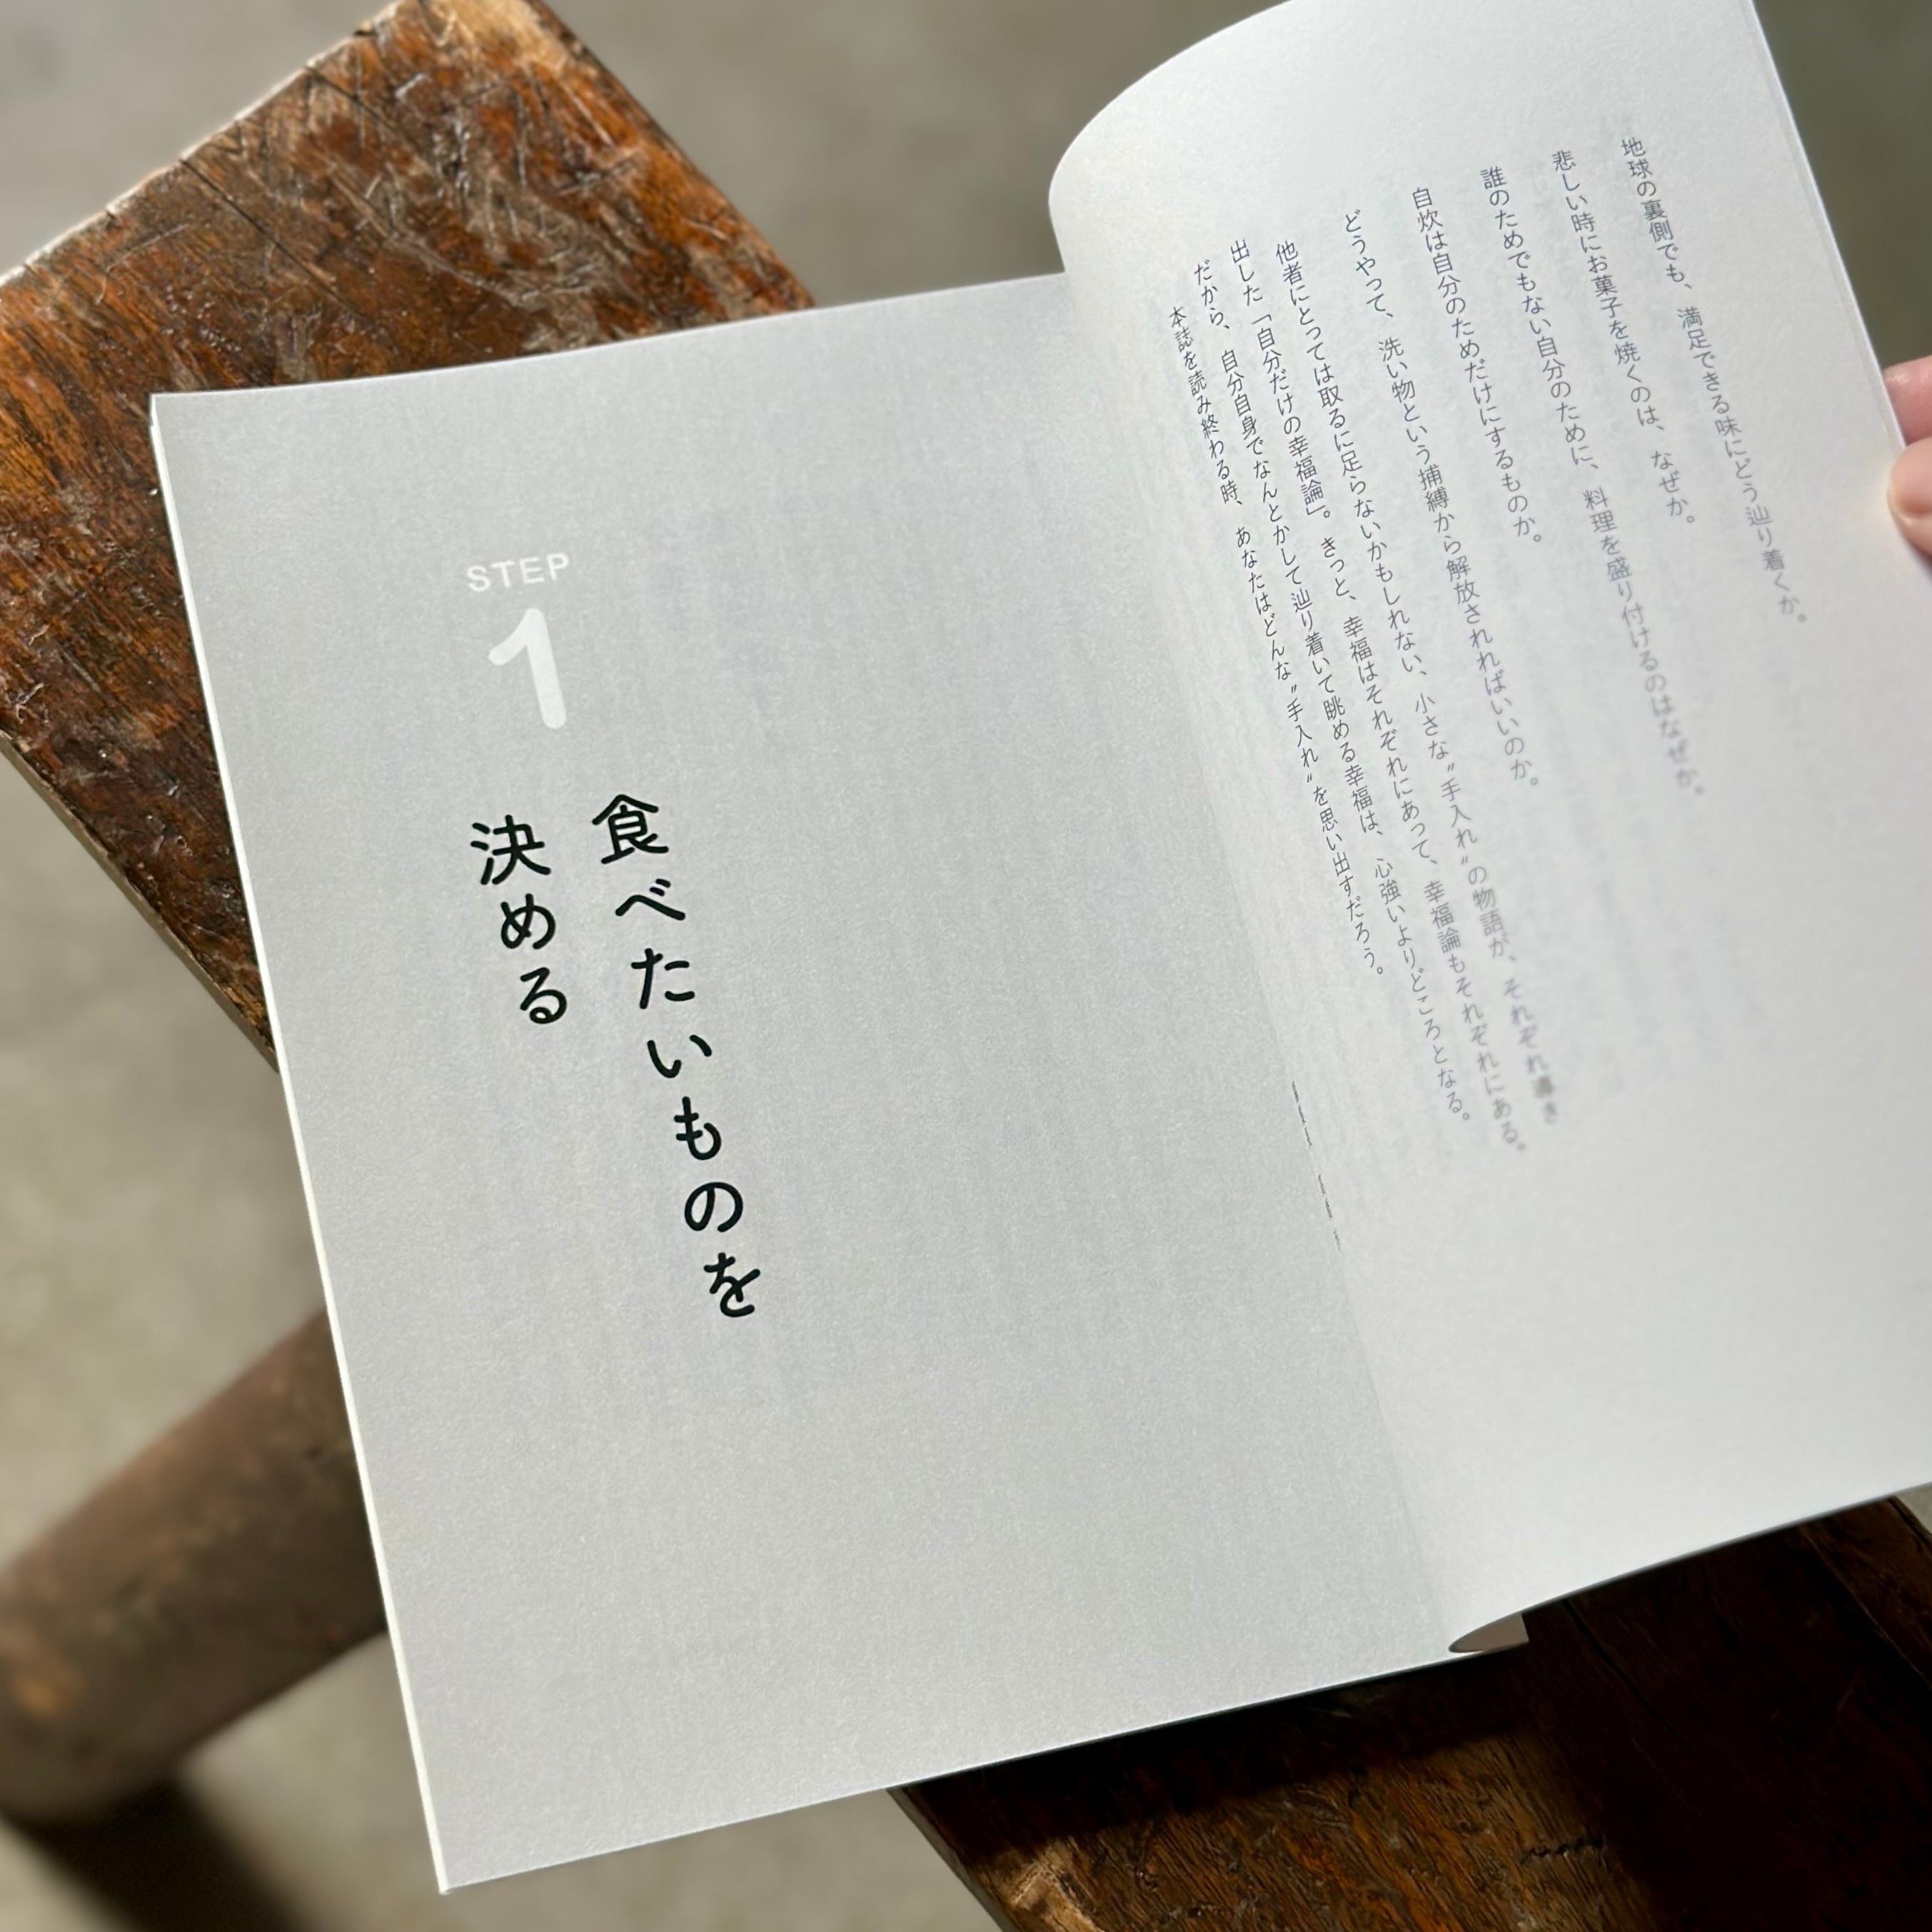 地球の裏側でも、満足できる味にどう辿り着くか。
悲しい時にお菓子を焼くのは、なぜか。
誰のためでもない自分のために、料理を盛り付けるのはなぜか。
自炊は自分のためだけにするものか。
どうやって、洗い物という捕縛から解放されればいいのか。
他者にとっては取るに足らないかもしれない、小さな〝手入れ〟の物語が、それぞれ導き
出した「自分だけの幸福論」。きっと、幸福はそれぞれにあって、幸福論もそれぞれにある。
だから、自分自身でなんとかして辿り着いて眺める幸福は、心強いよりどころとなる。
本誌を読み終わる時、あなたはどんな〝手入れ〟を思い出すだろう。
STEP
1
食べたいものを
決める